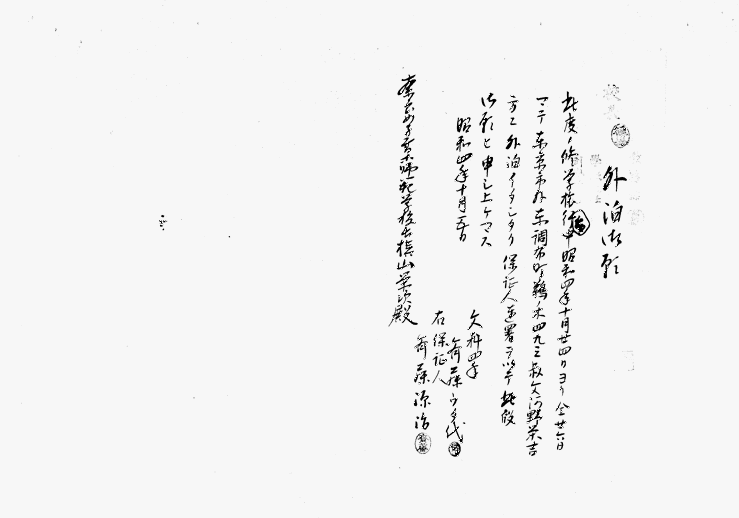 外泊御願
此度ノ修学旅行中昭和四年十月廿四日ヨリ仝廿六日
マデ東京市外東調布町鵜ノ木四九三叔父河野榮吉
方ニ外泊イタシタク保証人連署ヲ以テ此段
御願ヒ申シ上ゲマス
昭和四年十月五日
文科四年
齊藤ウタ代
右保証人
齊藤源治
奈良女子高等師範学校長槇山榮次殿